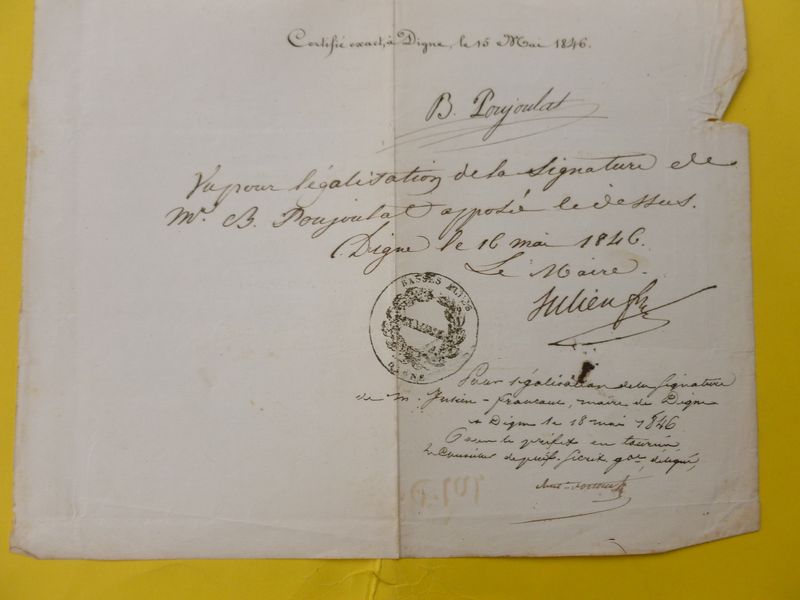 Certifié exact, à Digne, le 15 Mai 1846.
B. Poujoulat
Vu pour légalisation de la signature de
Mr. B. Poujoulat apposé ci dessus.
Digne le 16 mai 1846.
Le Maire.
Julien
BASSES ALPES
DIGNE
Pour légalisation de la signature
de M. Julien - francoul, maire de Digne
a Digne le 18 mai 1846
le préfet en tournée
le Conseiller de préf. Secrét. gal. délégué,